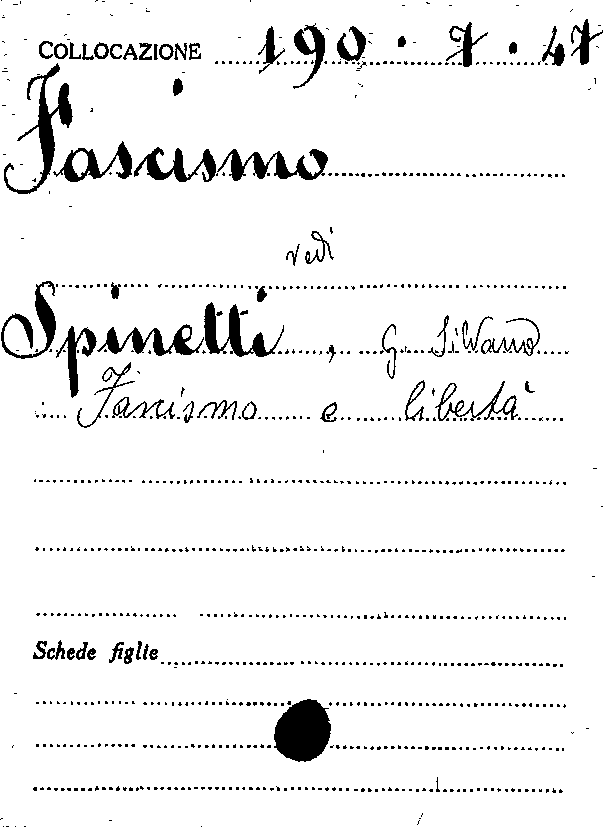 COLLOCAZIONE 190 . 7 . 47
Fascismo
vedi
Spinetti, G. Silvano
Fascismo e libertà
Schede figlie